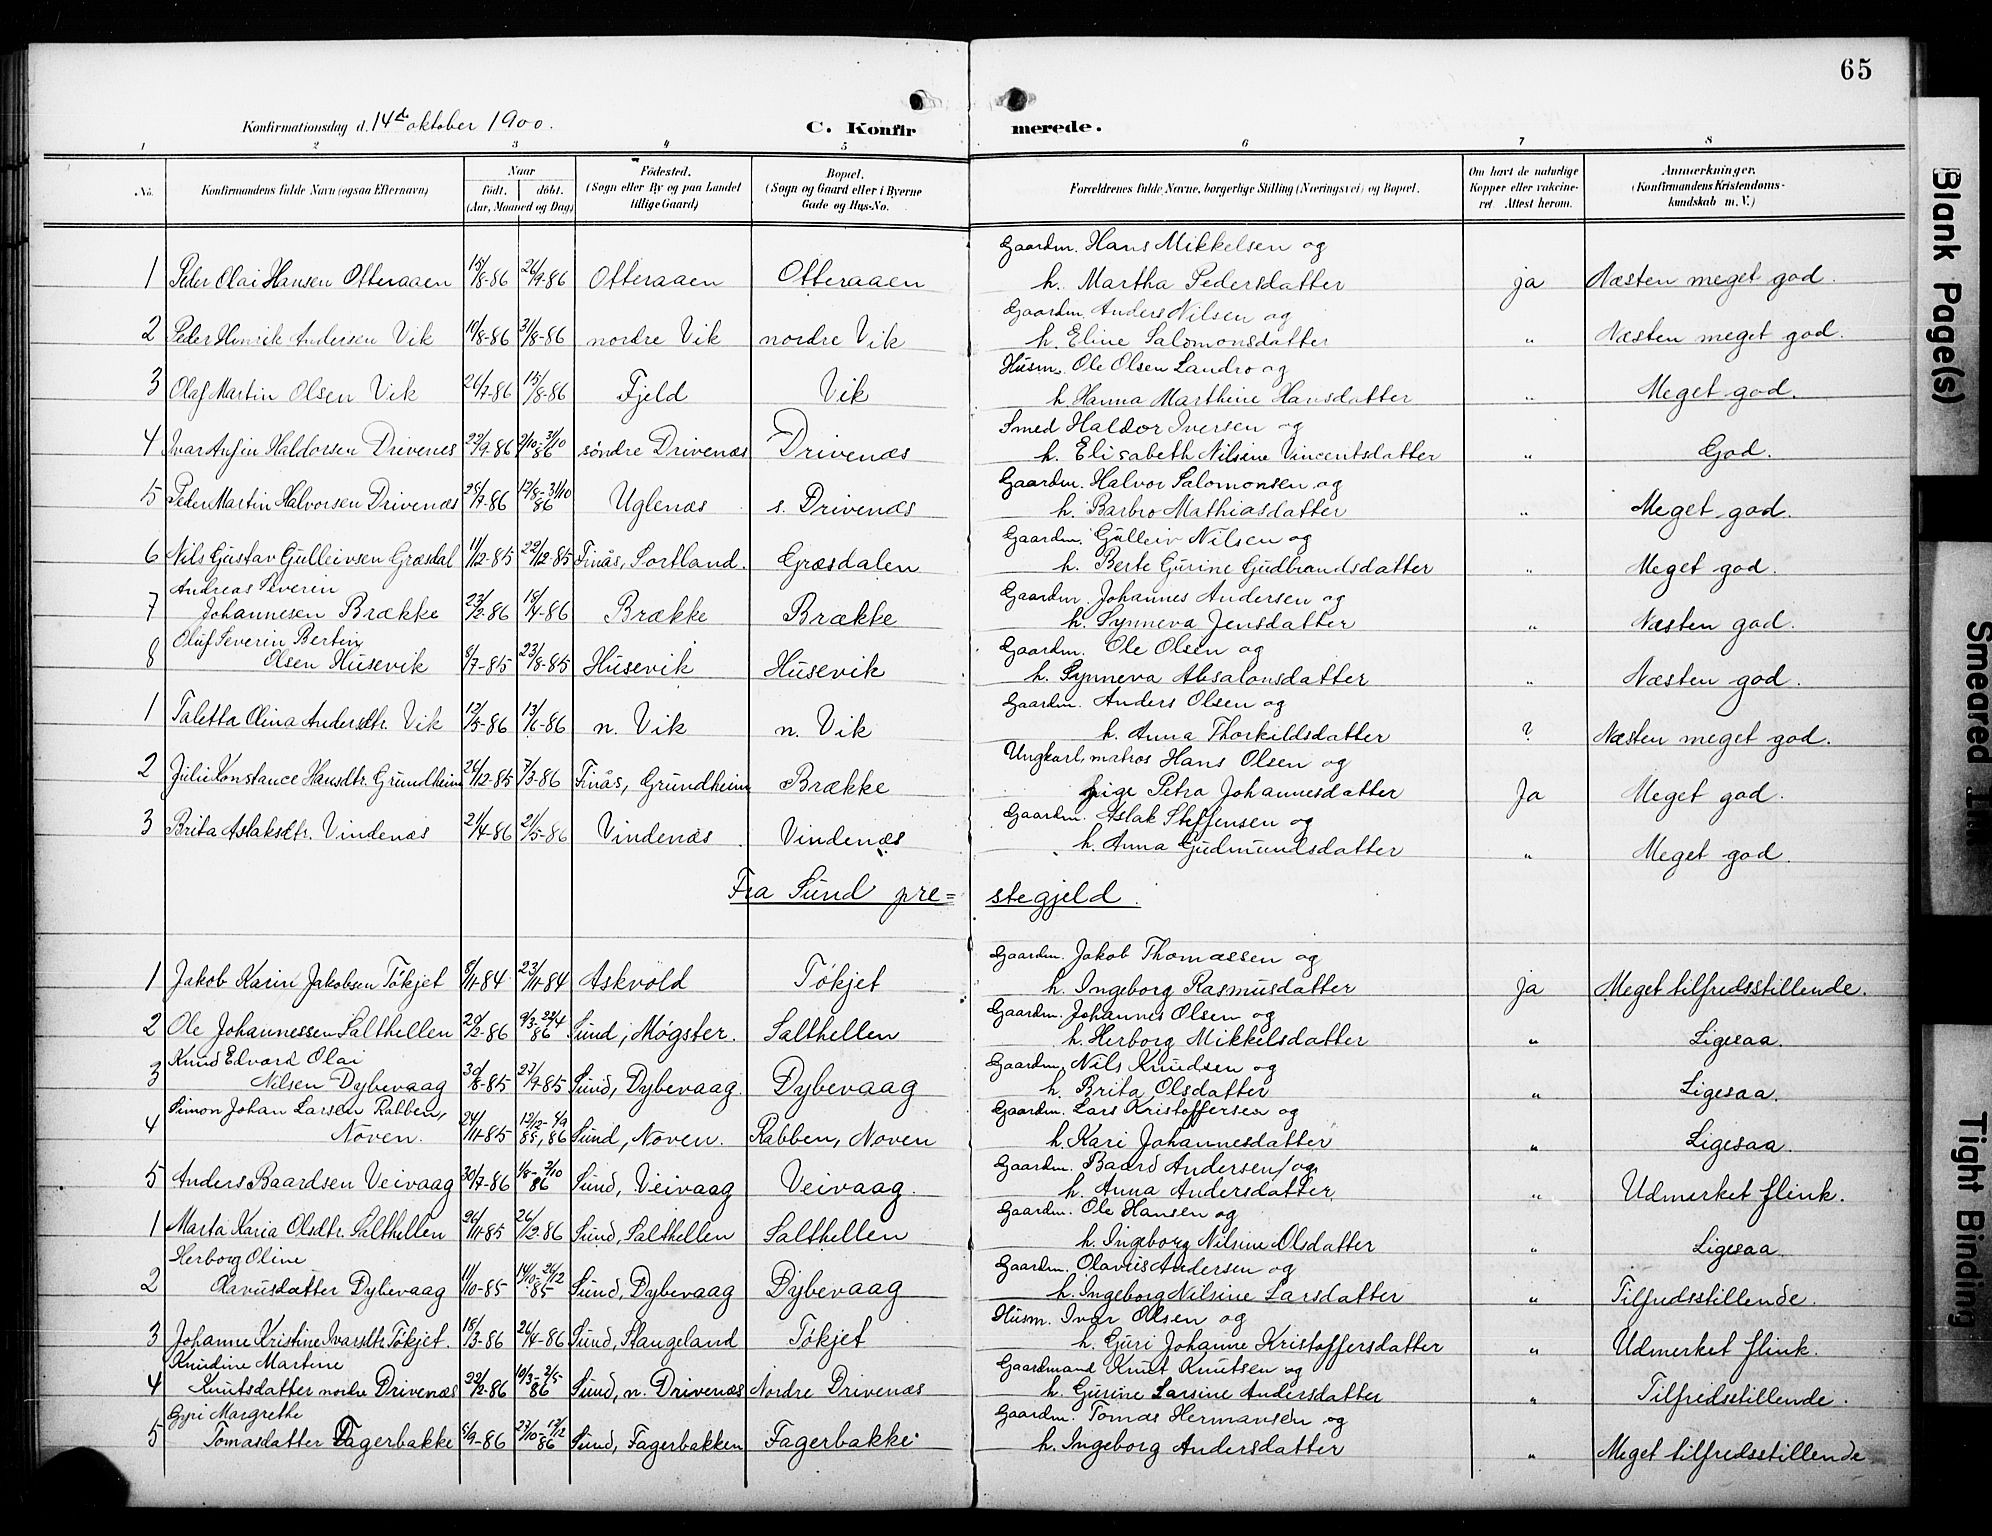 65
Konfirmationsdag d. 14de oktober 1900.
C. Konfirmerede.
1 2 3 4 5 6 7 8
No. Konfirmandens fulde Navn (ogsaa Efternavn) Naar født. døbt. (Aar, Maaned og Dag) Fødested. (Sogn eller By og paa Landet tillige Gaard) Bopæl. (Sogn og Gaard eller i Byerne Gade og Hus-No. Forældrenes fulde Navne, borgerlige Stilling (Næringsvei) og Bopæl. Om havt de naturlige Kopper eller vakcineret. Attest herom. Anmerkninger. (Konfirmandens Kristendomskundskab m. V.)
Gaardm. Hans Mikkelsen og
1 Peder Olai Hansen Otteraaen 15/8-86 26/9-86 Otteraaen Otteraaen h. Martha Pedersdatter ja Næsten meget god.
Gaardm. Anders Nilsen og
2 Peder Henrik Andersen Vik 10/8-86 31/8-86 nordre Vik nordre Vik h. Eline Salomonsdatter " Næsten meget god.
Husm. Ole Olsen Landro og
3 Olaf Martin Olsen Vik 26/7-86 15/8-86 Fjeld Vik h. Hanna Marthine Hansdatter " Meget god.
Smed Haldor Iversen og
4 Ivar Anfin Haldorsen Drivenes 22/9-86 2/10-31/10 86 søndre Drivenæs Drivenæs h. Elisabeth Nilsine Vincentsdatter " God.
Gaardm. Halvor Salomonsen og
5 Peder Martin Halvorsen Drivenæs 28/7-86 12/8-31/10 86 Uglenæs s. Drivenæs h. Barbro Mathiasdatter " Meget god.
Gaardm. Gulleiv Nilsen og
6 Nils Gustav Gulleivsen Græsdal 11/12-85 22/12-85 Finås, Sortland. Græsdalen h. Berte Gurine Gudbrandsdatter " Meget god.
Andreas Severin Gaardm. Johannes Andersen og
7 Johannesen Brække 23/2-86 18/4-86 Brække Brække h. Synneva Jensdatter " Næsten god.
Oluf Severin Bertin Gaardm. Ole Olsen og
8 Olsen Husevik 8/7-85 23/8-85 Husevik Husevik h. Synneva Absalonsdatter " Næsten god.
Gaardm. Anders Olsen og
1 Taletta Olina Andersdtr. Vik 12/5-86 13/6-86 n. Vik n. Vik h. Anna Thorkildsdatter ? Næsten meget god.
Ungkarl, matros Hans Olsen og
2 Julie Konstance Hansdtr. Grundheim 26/12-85 7/3-86 Finås, Grundheim Brække pige Petra Johannesdatter Ja Meget god.
Gaardm. Aslak Steffensen og
3 Brita Aslaksdtr. Vindenæs 21/4-86 21/5-86 Vindenæs Vindenæs h. Anna Gudmundsdatter " Meget god.
Fra Sund pre=stegjeld.
Gaardm. Jakob Thomassen og
1 Jakob Karin Jakobsen Tøkjet 8/11-84 23/11-84 Askvold Tøkjet h. Ingeborg Rasmusdatter ja Meget tilfredsstillende.
Gaardm. Johannes Olsen og
2 Ole Johannessen Salthellen 20/2-86 9/3-22/4 86 Sund, Møgster. Salthellen h. Herborg Mikkelsdatter " Ligesaa.
Knud Edvard Olai Gaardm. Nils Knudsen og
3 Nilsen Dybevaag 30/8-85 27/9-85 Sund, Dybevaag Dybevaag h. Brita Olsdatter " Ligesaa.
Simon Johan Larsen Rabben, Gaardm. Lars Kristoffersen og
4 Noven. 24/11-85 12/12-4/9 85, 86 Sund, Noven. Rabben, Noven h. Kari Johannesdatter " Ligesaa.
Gaardm. Baard Andersen og
5 Anders Baardsen Veivaag 30/7-86 1/8-3/10 86 Sund, Veivaag Veivaag. h. Anna Andersdatter " Udmerket flink.
Gaardm. Ole Hansen og
1 Marta Karia Olsdtr. Salthellen 26/11-85 26/12-86 Sund, Salthellen Salthellen h. Ingeborg Nilsine Olsdatter " Ligesaa
Herborg Oline Gaardm. Olavus Andersen og
2 Olavusdatter Dybevaag 11/10-85 14/10-26/12 -85 Sund, Dybevaag Dybevaag h. Ingeborg Nilsine Larsdatter " Tilfredsstillende.
Husm. Ivar Olsen og
3 Johanne Kristine Ivarsdtr. Tøkjet. 18/3-86 26/4-86 Sund, Stangeland Tøkjet h. Guri Johanne Kristoffersdatter " Udmerket flink.
Knudine Martine Gaardmand Knut Knutsen og
4 Knutsdatter nordre Drivenæs 22/2-86 10/3-2/5 86 Sund, n. Drivenæs Nordre Drivenæs h. Gurine Larsine Andersdatter " Tilfredsstillende.
Gyri Margrethe Gaardm. Tomas Hermansen og
5 Tomasdatter Fagerbakke 8/9-86 27/10-12/12 -86 Sund, Fagerbakken Fagerbakke h. Ingeborg Andersdatter " Meget tilfredsstillende
Blank Page(s)
Smeared Ink
Tight Binding